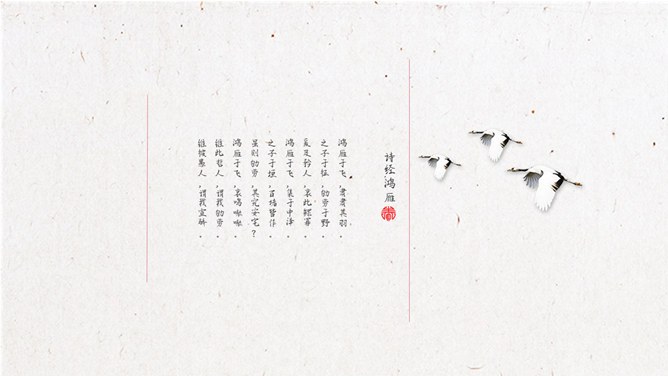 诗经鸿雁
鸿雁于飞,肃肃其羽.
之子于征,劬劳于野.
爰及矜人,哀此鳏寡.
鸿雁于飞,集于中泽.
之子于垣,百堵皆作.
虽则劬劳,其究安宅?
鸿雁于飞,哀鸣嗷嗷.
维此哲人,谓我劬劳.
维彼愚人,谓我宣骄.